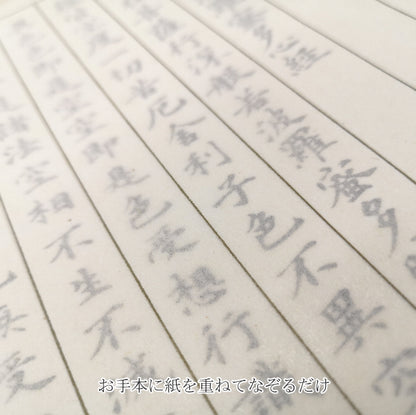 蜜多心経
行深般若波羅蜜多
度一切苦厄舎利子色不異空
即是空空即是色受想行
諸法空相不生不
無受
お手本に紙を重ねてなぞるだけ